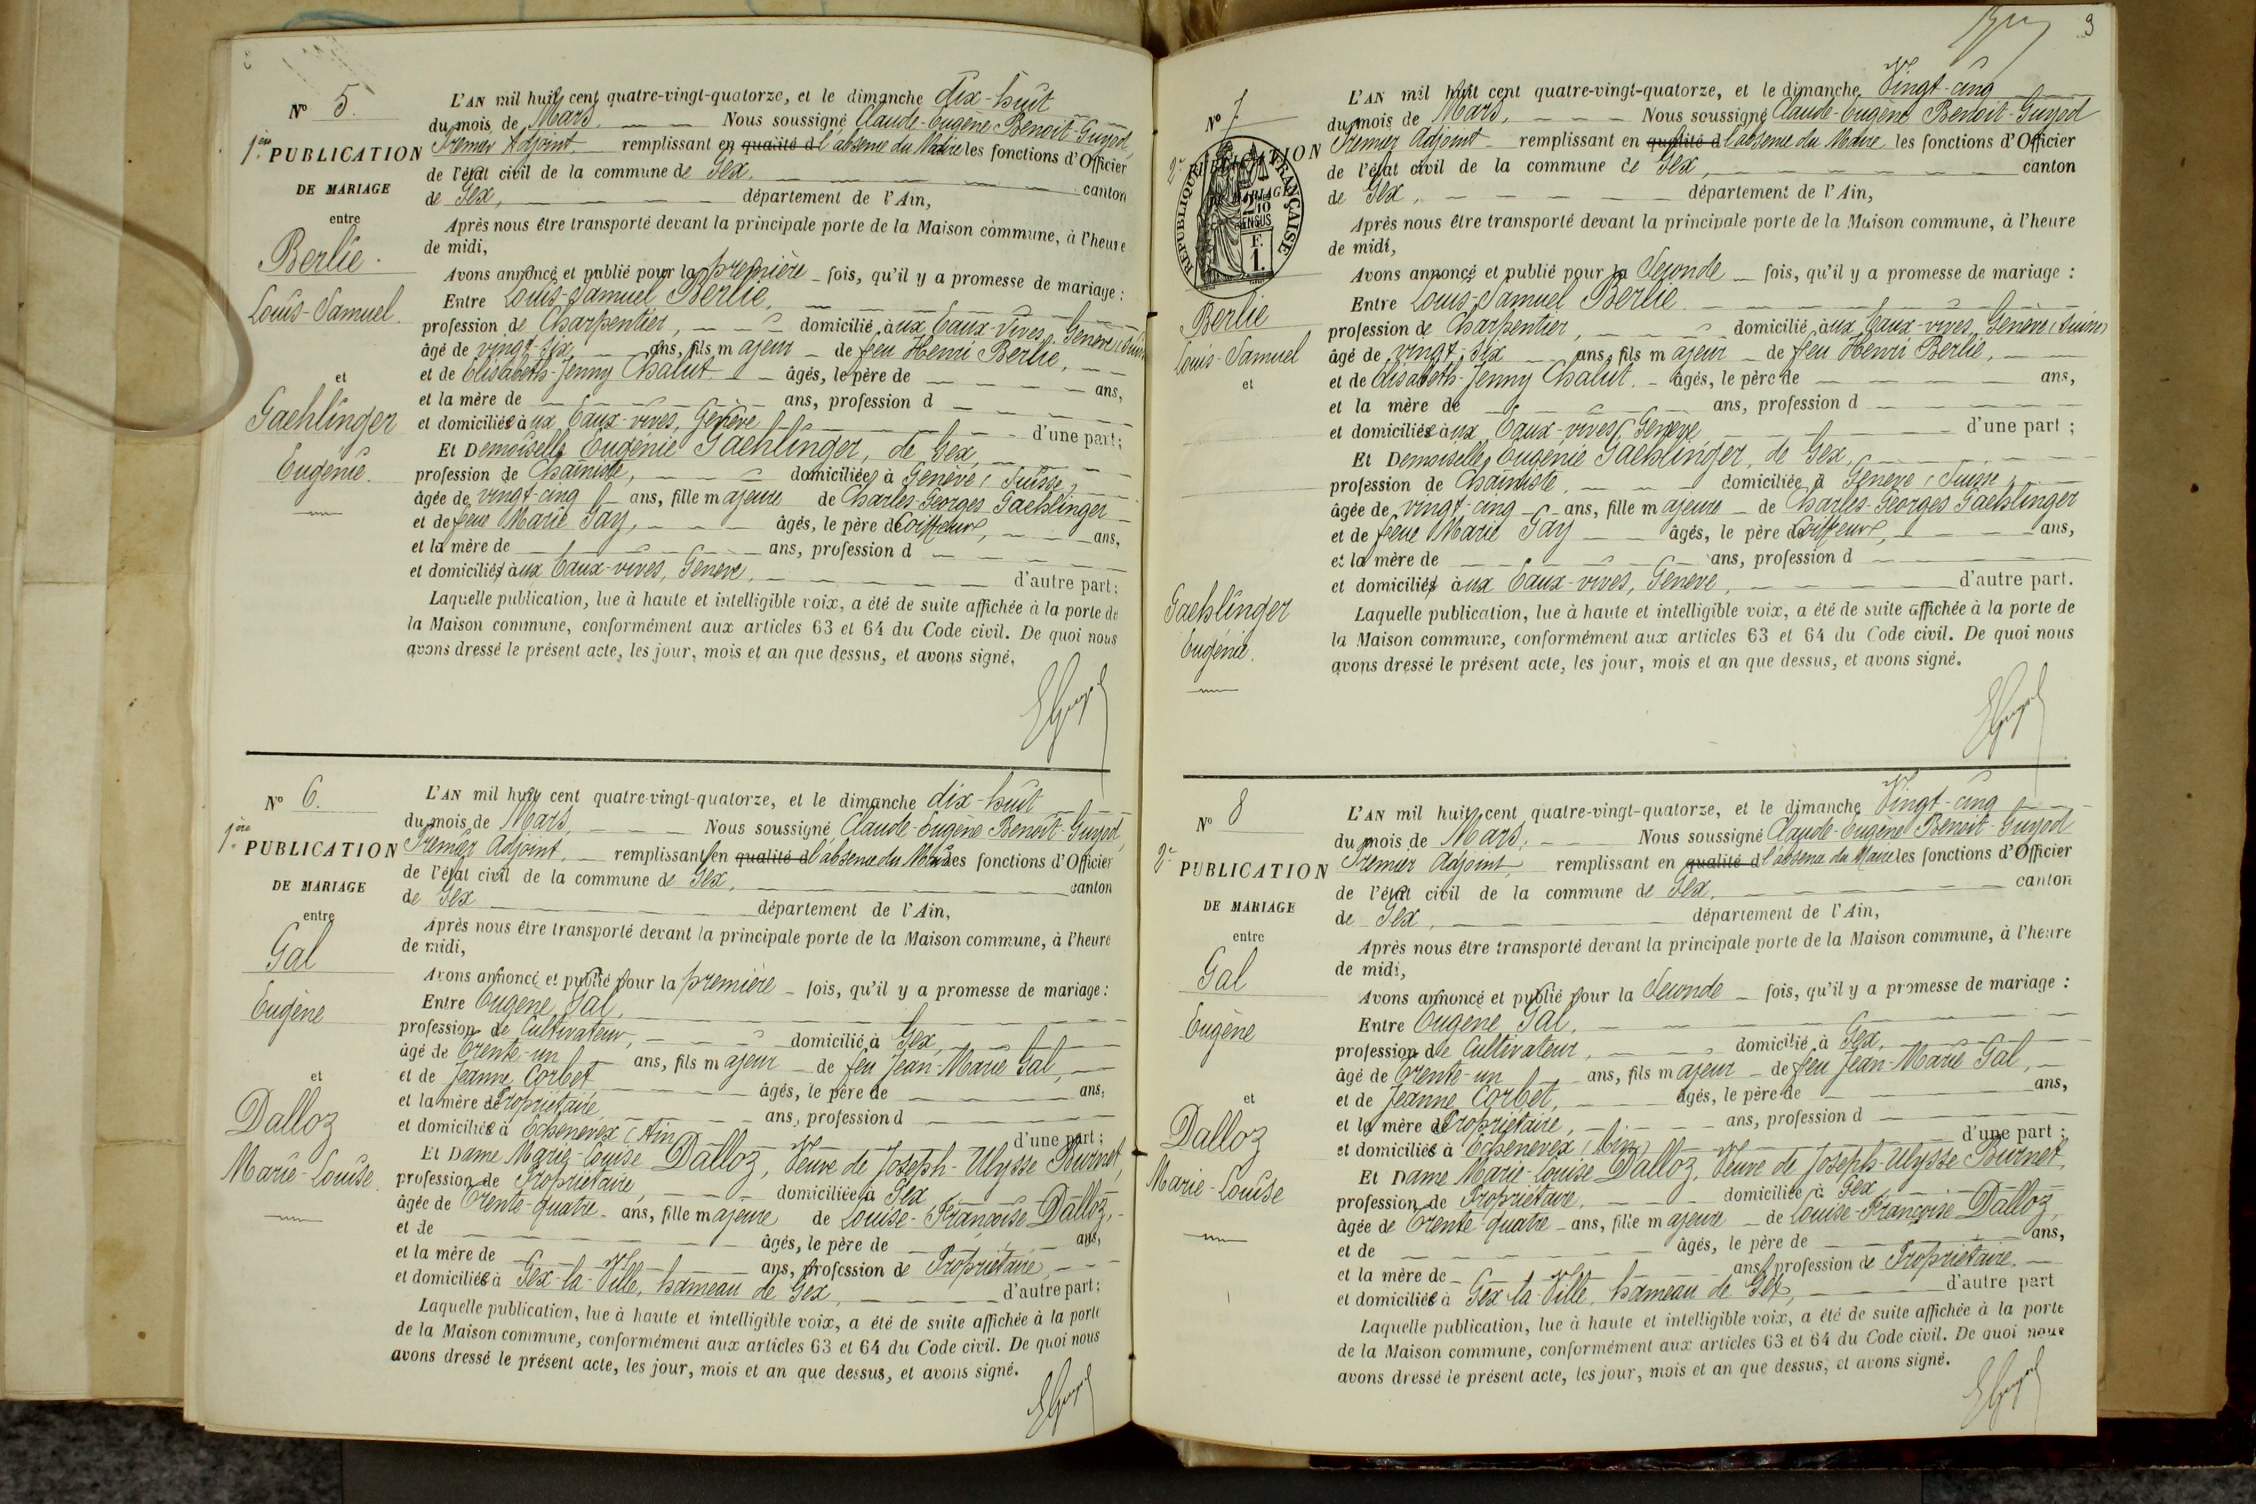 Nº 5.
1ère PUBLICATION
DE MARIAGE
entre
Berlie.
Louis-Samuel.
et
Gaehlinger
Eugénie.
L'AN mil huit cent quatre-vingt-quatorze, et le dimanche dix-huit
du mois de Mars. Nous soussigné Claude-Eugène Benoit-Guyod,
Premier Adjoint remplissant en qualité d l'absence du Maire les fonctions d'Officier
de l'état civil de la commune de Gex, canton
de Gex, département de l'Ain,
Après nous être transporté devant la principale porte de la Maison commune, à l'heure
de midi,
Avons annoncé et publié pour la première fois, qu'il y a promesse de mariage :
Entre Louis-Samuel Berlie,
profession de Charpentier, domicilié aux Eaux-vives, Genève (Suisse)
âgé de vingt-six ans, fils majeur de feu Henri Berlie,
et de Elisabeth-Jenny Chalut âgés, le père de ans,
et la mère de ans, profession d
et domiciliés aux Eaux-vives, Genève d'une part;
Et Demoiselle Eugénie Gaehlinger, de Gex,
profession de Chaîniste, domiciliée à Genève (Suisse)
âgée de vingt-cinq ans, fille majeure de Charles-Georges Gaehlinger
et de feue Marie Gay, âgés, le père de Coiffeur, ans,
et la mère de ans, profession d
et domiciliés aux Eaux-vives, Genève, d'autre part;
Laquelle publication, lue à haute et intelligible voix, a été de suite affichée à la porte de
la Maison commune, conformément aux articles 63 et 64 du Code civil. De quoi nous
avons dressé le présent acte, les jour, mois et an que dessus, et avons signé.
Nº 6.
1ère PUBLICATION
DE MARIAGE
entre
Gal
Eugène
et
Dalloz
Marie-Louise.
L'AN mil huit cent quatre-vingt-quatorze, et le dimanche dix-huit
du mois de Mars, Nous soussigné Claude-Eugène Benoit-Guyod,
Premier Adjoint, remplissant en qualité d l'absence du Maire les fonctions d'Officier
de l'état civil de la commune de Gex, canton
de Gex département de l'Ain,
Après nous être transporté devant la principale porte de la Maison commune, à l'heure
de midi,
Avons annoncé et publié pour la première fois, qu'il y a promesse de mariage :
Entre Eugène Gal,
profession de Cultivateur, domicilié à Gex,
âgé de trente-un ans, fils majeur de feu Jean-Marie Gal,
et de Jeanne Corbet âgés, le père de ans,
et la mère de Propriétaire, ans, profession d
et domiciliés à Echenevex (Ain) d'une part;
Et Dame Marie-Louise Dalloz, Veuve de Joseph-Ulysse Burnet,
profession de Propriétaire, domiciliée à Gex
âgée de trente-quatre ans, fille majeure de Louise-Françoise Dalloz,
et de âgés, le père de ans,
et la mère de ans, profession de Propriétaire,
et domiciliés à Gex-la-Ville, hameau de Gex, d'autre part;
Laquelle publication, lue à haute et intelligible voix, a été de suite affichée à la porte
de la Maison commune, conformément aux articles 63 et 64 du Code civil. De quoi nous
avons dressé le présent acte, les jour, mois et an que dessus, et avons signé.
3
Nº 7
2e PUBLICATION
RÉPUBLIQUE FRANÇAISE
Berlie
Louis-Samuel
et
Gaehlinger
Eugénie.
L'AN mil huit cent quatre-vingt-quatorze, et le dimanche Vingt-cinq
du mois de Mars, Nous soussigné Claude-Eugène Benoit-Guyod
Premier Adjoint remplissant en qualité d l'absence du Maire les fonctions d'Officier
de l'état civil de la commune de Gex, canton
de Gex, département de l'Ain,
Après nous être transporté devant la principale porte de la Maison commune, à l'heure
de midi,
Avons annoncé et publié pour la Seconde fois, qu'il y a promesse de mariage :
Entre Louis-Samuel Berlie
profession de Charpentier, domicilié aux Eaux-vives, Genève (Suisse)
âgé de vingt-six ans, fils majeur de feu Henri Berlie,
et de Elisabeth-Jenny Chalut. âgés, le père de ans,
et la mère de ans, profession d
et domiciliés aux Eaux-vives, Genève d'une part ;
Et Demoiselle Eugénie Gaehlinger, de Gex,
profession de Chaîniste, domiciliée à Genève (Suisse)
âgée de vingt-cinq ans, fille majeure de Charles-Georges Gaehlinger
et de feue Marie Gay âgés, le père de Coiffeur, ans,
et la mère de ans, profession d
et domiciliés aux Eaux-vives, Genève, d'autre part.
Laquelle publication, lue à haute et intelligible voix, a été de suite affichée à la porte de
la Maison commune, conformément aux articles 63 et 64 du Code civil. De quoi nous
avons dressé le présent acte, les jour, mois et an que dessus, et avons signé.
Nº 8
2e PUBLICATION
DE MARIAGE
entre
Gal
Eugène
et
Dalloz
Marie-Louise
L'AN mil huit cent quatre-vingt-quatorze, et le dimanche Vingt-cinq
du mois de Mars, Nous soussigné Claude-Eugène Benoit-Guyod
Premier Adjoint, remplissant en qualité d l'absence du Maire les fonctions d'Officier
de l'état civil de la commune de Gex, canton
de Gex, département de l'Ain,
Après nous être transporté devant la principale porte de la Maison commune, à l'heure
de midi,
Avons annoncé et publié pour la Seconde fois, qu'il y a promesse de mariage :
Entre Eugène Gal,
profession de Cultivateur, domicilié à Gex,
âgé de trente-un ans, fils majeur de feu Jean-Marie Gal,
et de Jeanne Corbet, âgés, le père de ans,
et la mère de Propriétaire, ans, profession d
et domiciliés à Echenevex (Ain) d'une part ;
Et Dame Marie-Louise Dalloz, Veuve de Joseph-Ulysse Burnet,
profession de Propriétaire, domiciliée à Gex
âgée de trente-quatre ans, fille majeure de Louise-Françoise Dalloz,
et de âgés, le père de ans,
et la mère de ans, profession de Propriétaire,
et domiciliés à Gex-la-Ville, hameau de Gex, d'autre part
Laquelle publication, lue à haute et intelligible voix, a été de suite affichée à la porte
de la Maison commune, conformément aux articles 63 et 64 du Code civil. De quoi nous
avons dressé le présent acte, les jour, mois et an que dessus, et avons signé.